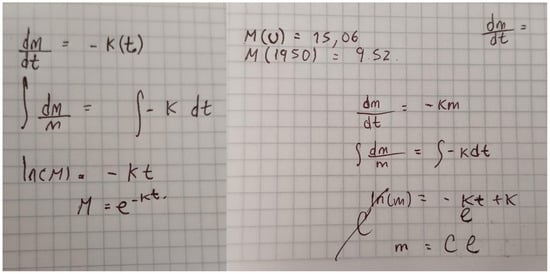 dm/dt = - K(t)
∫ dm/m = ∫ - K dt
ln(M) = - Kt
M = e^-Kt.
M(0) = 15,06
M(1950) = 9 52.
dm/dt =
dm/dt = -Km
∫ dm/m = ∫ -Kdt
e^ln(m) = e^- Kt + K
m = C e